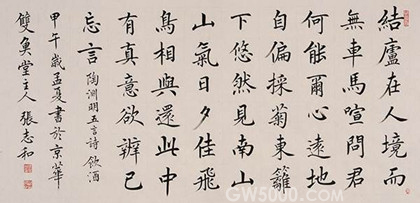 結廬在人境而
無車馬喧問君
何能爾心遠地
自偏採菊東籬
下悠然見南山
山氣日夕佳飛
鳥相與還此中
有真意欲辨已
忘言 陶淵明五言詩 飲酒
甲午歲孟夏書於京華
雙魚堂主人張志和
GW5000.com